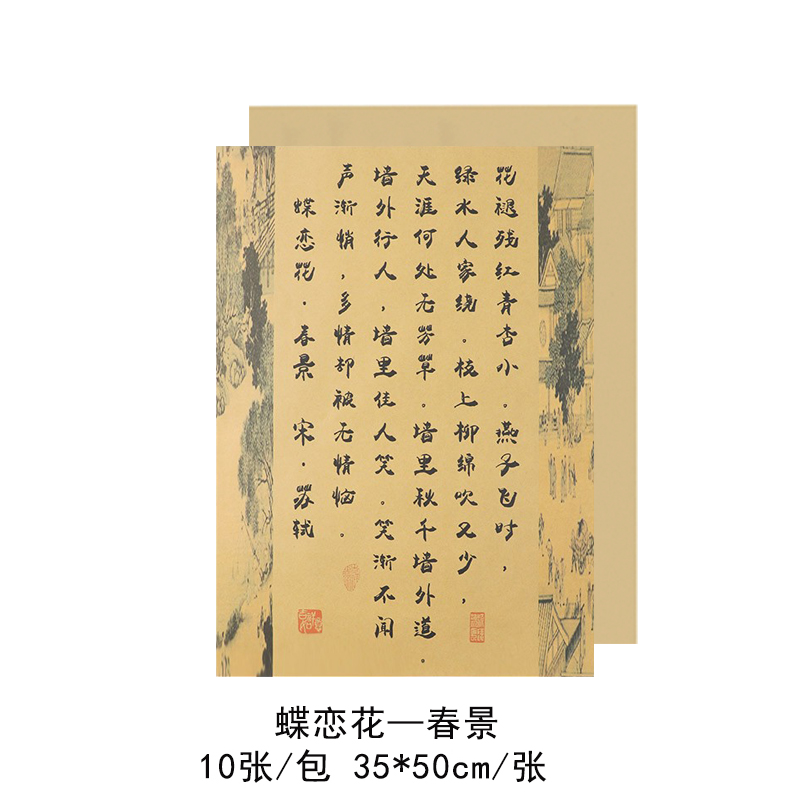 花褪残红青杏小。燕子飞时，
绿水人家绕。枝上柳绵吹又少，
天涯何处无芳草。墙里秋千墙外道。
墙外行人，墙里佳人笑。笑渐不闻
声渐悄，多情却被无情恼。
蝶恋花·春景 宋·苏轼
蝶恋花—春景
10张/包 35*50cm/张